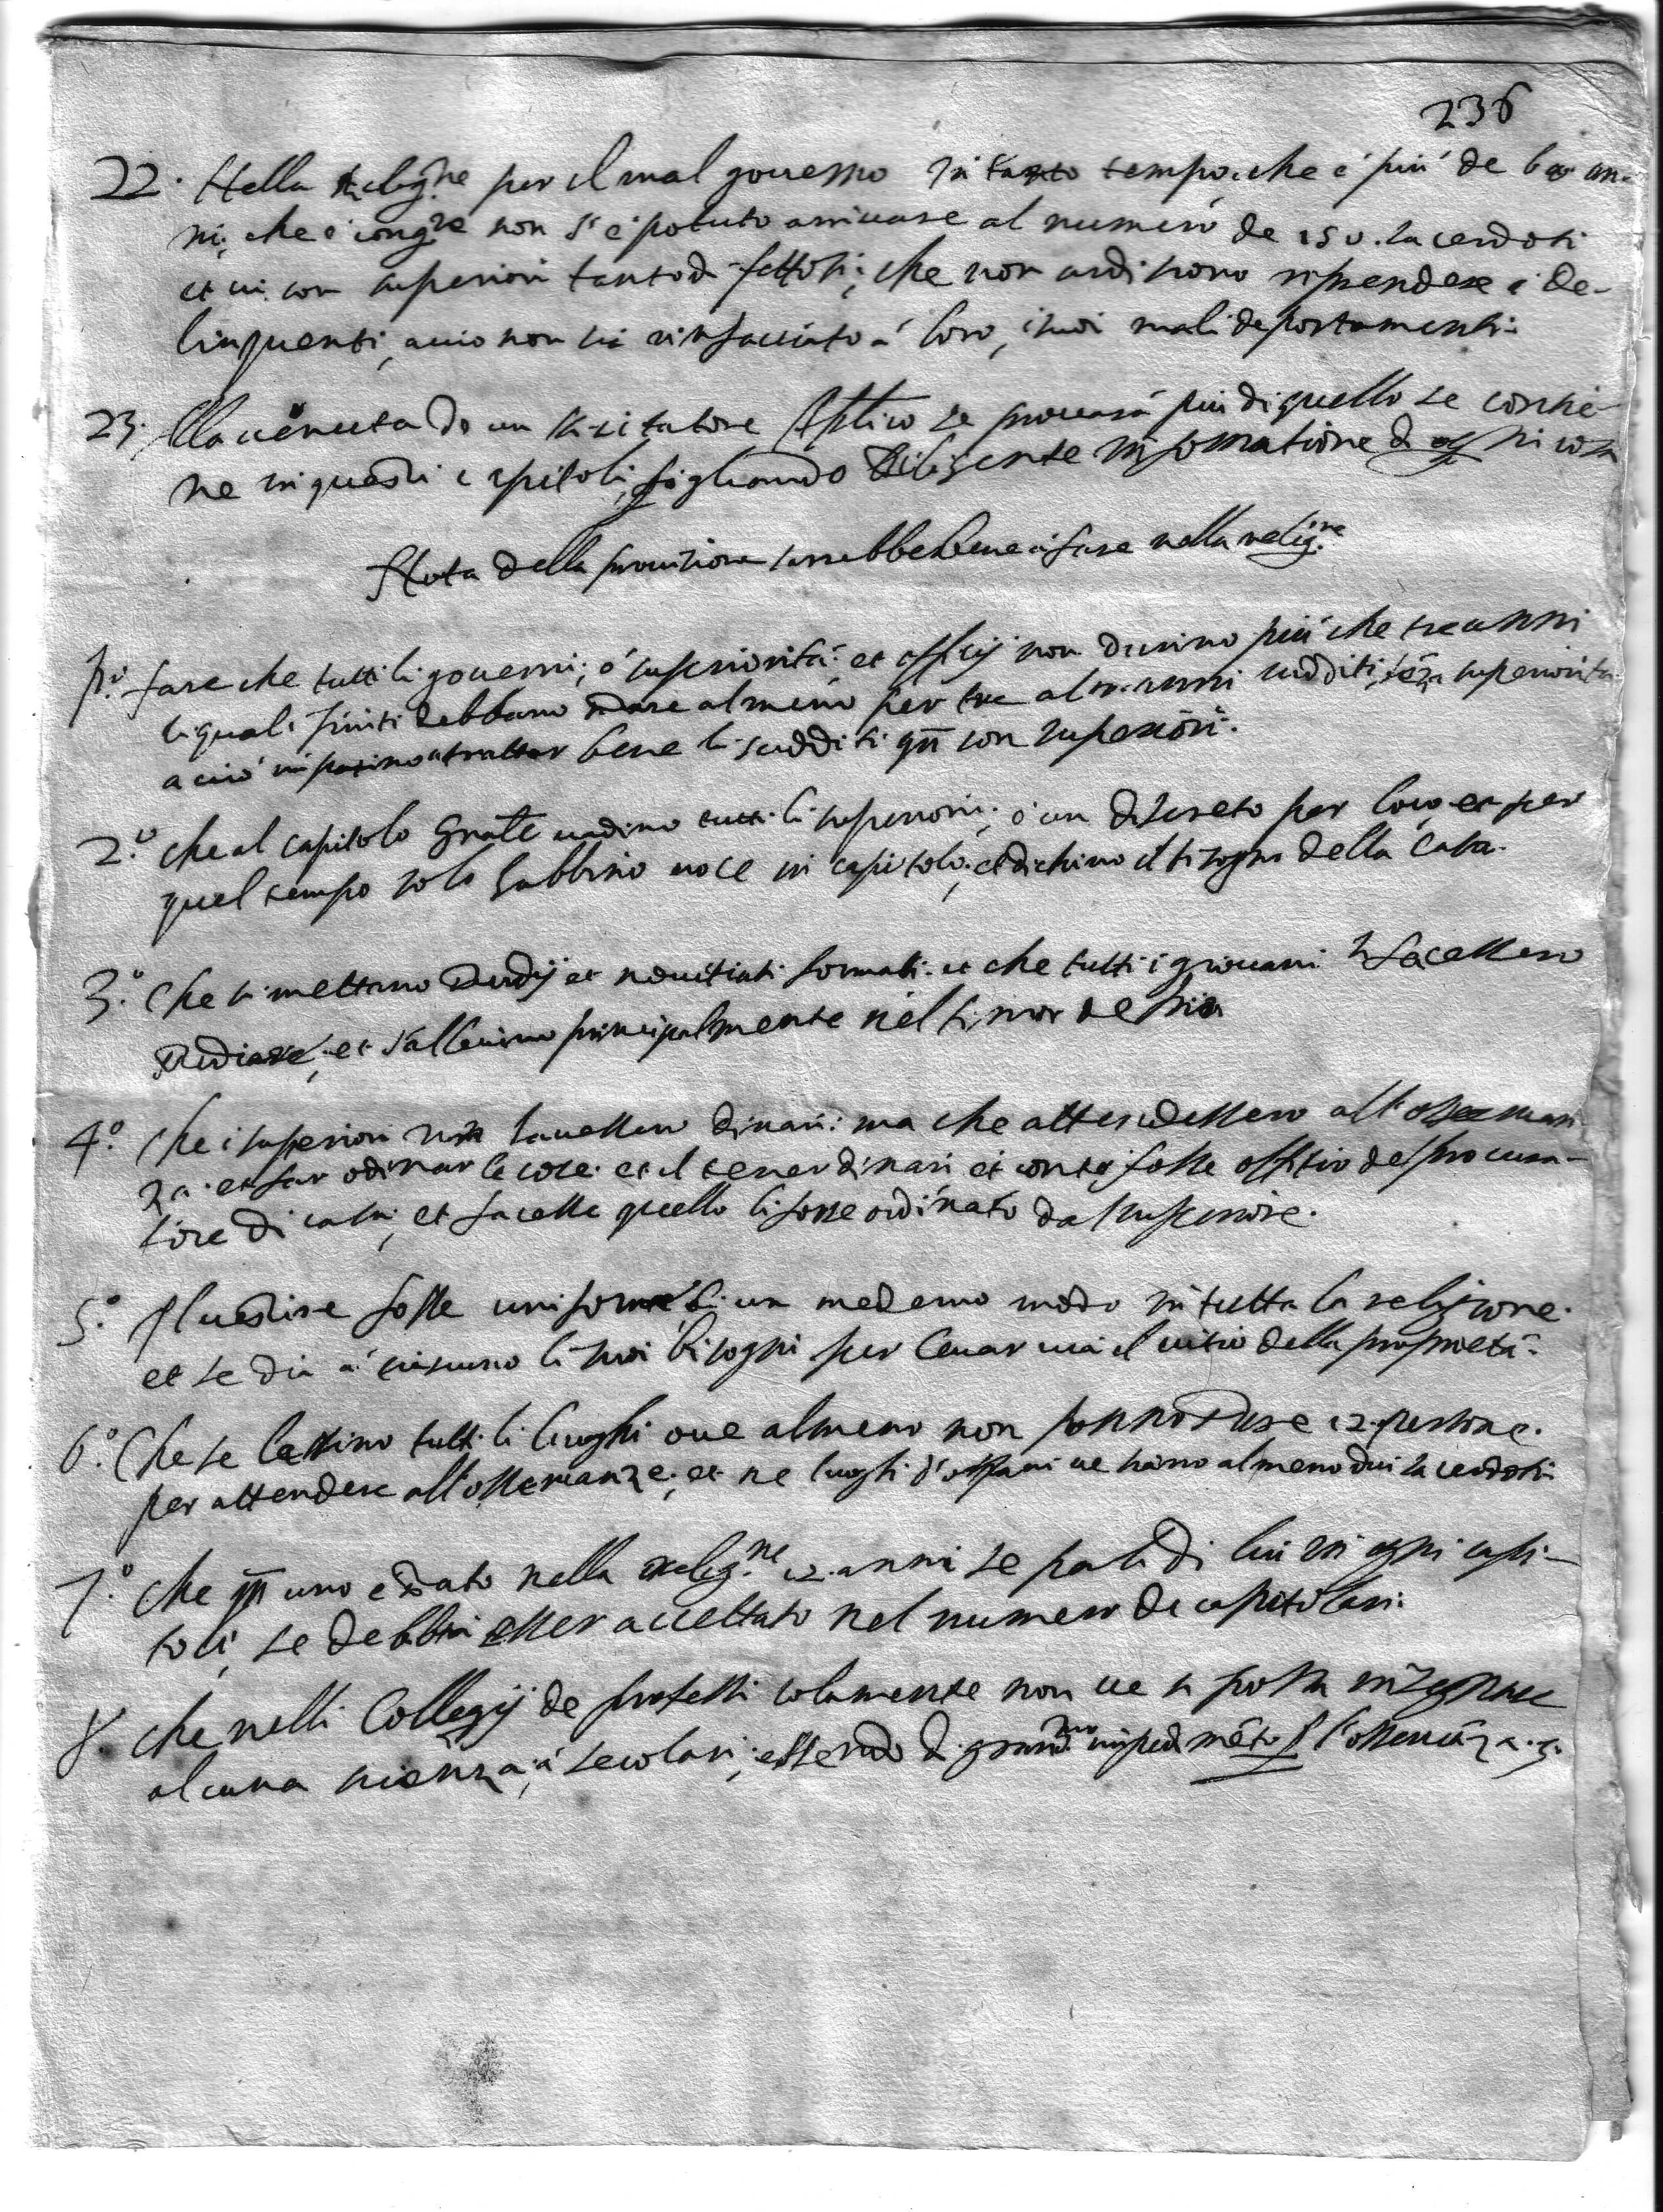 236
22. Nella Relig.ne per il mal governo in tanto tempo, che è più de 60 an-
ni, che è congr.e non s'è potuto arrivare al numero de 150. sacerdoti
et vi son superiori tanto difettosi, che non ardiscono riprendere i de-
linquenti, acciò non sii rinfacciato à loro, i suoi mali deportamenti.
23. Alla venuta de un Visitatore Ap.lico se provarà più di quello se contie-
ne in questi capitoli, pigliando diligente informatione d'ogni cosa
Nota della provisione sarrebbe bene à fare nella relig.ne
p.o fare che tutti li governi, ò superiorità et officij non durino più che tre anni
li quali finiti debbano stare al meno per tre altri anni sudditi, sẽza superiorità
acciò imparino à trattar bene li sudditi qñ son superiori.
2.o che al capitolo gñale vadino tutti li superiori, ò un discreto per loco, et per
quel tempo solo habbino voce in capitolo, et dichino il bisogno della Casa.
3.o Che si mettano studij et novitiati formati. et che tutti i giovani si facessero
studiare, et s'allevino principalmente nel timor de Dio
4.o Che i superiori non havessero dinari: ma che attendessero all'osservan
za. et far odinar le cose. et il tener dinari et conto fosse offitio del procura-
tore di casa, et facesse quello li fosse ordinato dal superiore.
5.o Il vestire fosse uniforme di un medemo modo in tutta la religione.
et se dia à ciascuno li suoi bisogni per levar via il vitio della proprietà.
6.o Che se lassino tutti li luoghi ove almeno non ponno stare 12. persone.
per attendere all'osservanze, et ne luoghi d'orfani ve siano almeno dui sacerdoti
7.o che qñ uno è stato nella relig.ne 12. anni se parli di lui in ogni capi-
tolo, se debbia esser accettato nel numero de capitolari.
8. che nelli Collegij de professi solamente non ve si possa insegnare
alcuna scienza, à secolari, essendo d. grand.mo impedimẽto p l'osservãza.